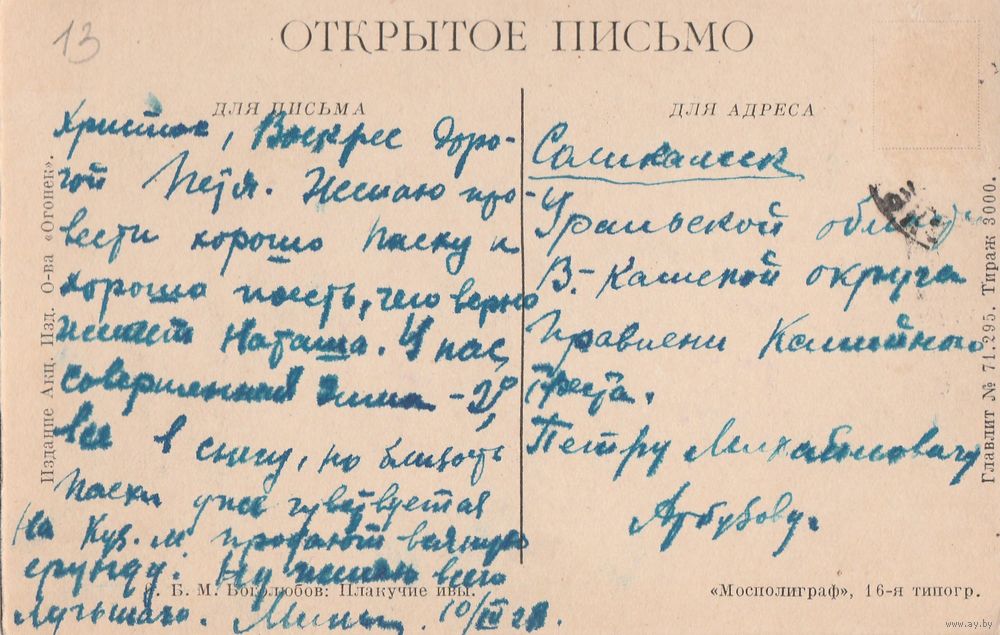 13
ОТКРЫТОЕ ПИСЬМО
ДЛЯ ПИСЬМА
Христос, Воскрес Доро-
гой Петя. Желаю про-
вести хорошо Пасху и
хорошо поесть, чего верно
желает Наташа. У нас,
совершенная зима -2°,
все в снегу, но близость
Пасхи уже чувствуется
На Куз. м. продают всякую
ерунду. Ну желаю всего
лучшаго. 10/IV
ДЛЯ АДРЕСА
Соликамск
Уральской области
В.-Камской округа
Правлени Калийного
Треста.
Петру Михайловичу
Арбузову.
Издание Акц. Изд. О-ва «Огонек».
Б. М. Боголюбов: Плакучие ивы.
«Мосполиграф», 16-я типогр.
Главлит № 71.295. Тираж 3000.
www.ay.by